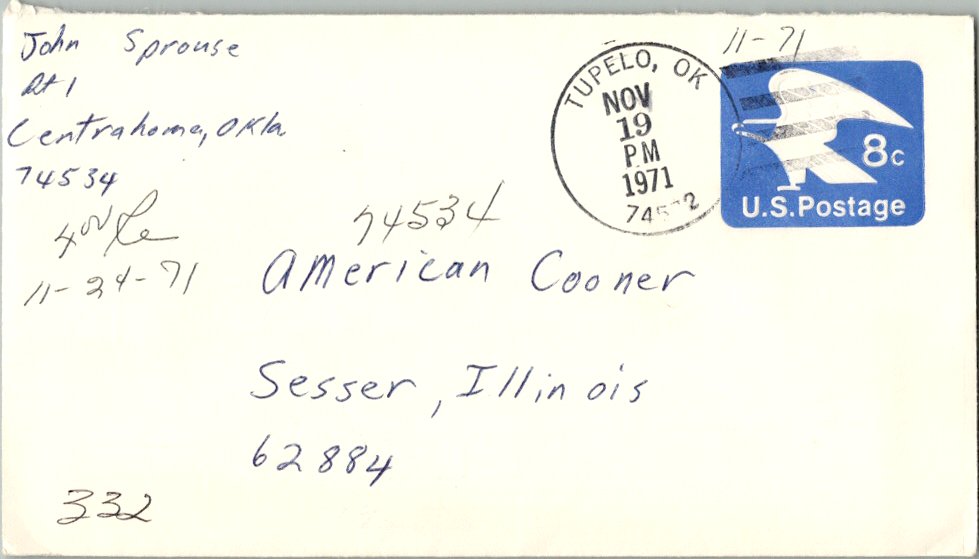 John Sprouse
Rt 1
Centrahoma, Okla.
74534
4 00
11-24-71
74534
11-71
TUPELO, OK
NOV
19
PM
1971
8c
U.S. Postage
American Cooner
Sesser, Illinois
62884
332